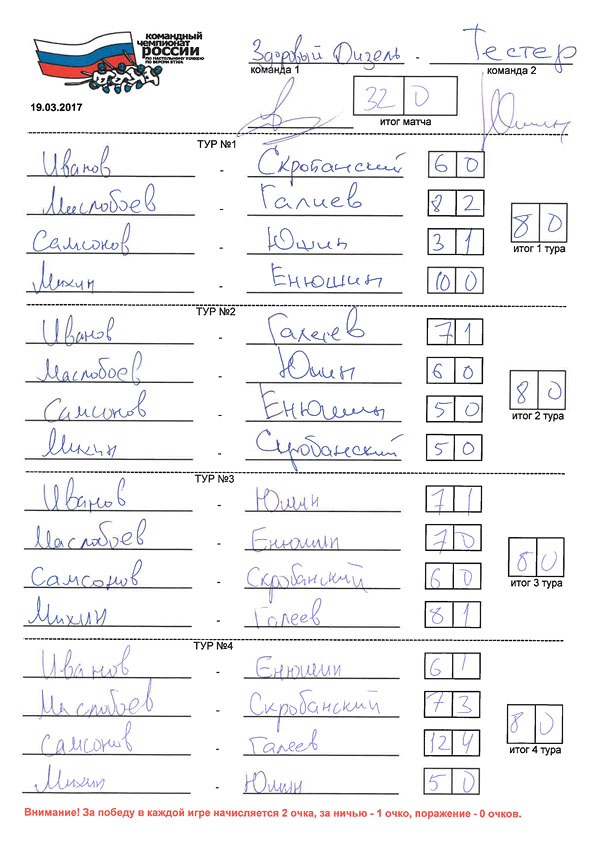 КОМАНДНЫЙ
ЧЕМПИОНАТ
РОССИИ
ПО НАСТОЛЬНОМУ ХОККЕЮ
ПО ВЕРСИИ STIGA
19.03.2017
Здоровый Дизель - Тестер
команда 1 команда 2
32 0
итог матча
ТУР №1
Иванов - Скробанский 6 0
Маслобоев - Галиев 8 2
Самсонов - Юшин 3 1
Михин - Енюшин 10 0
8 0
итог 1 тура
ТУР №2
Иванов - Галеев 7 1
Маслобоев - Юшин 6 0
Самсонов - Енюшин 5 0
Михин - Скробанский 5 0
8 0
итог 2 тура
ТУР №3
Иванов - Юшин 7 1
Маслобоев - Енюшин 7 0
Самсонов - Скробанский 6 0
Михин - Галеев 8 1
8 0
итог 3 тура
ТУР №4
Иванов - Енюшин 6 1
Маслобоев - Скробанский 7 3
Самсонов - Галеев 12 4
Михин - Юшин 5 0
8 0
итог 4 тура
Внимание! За победу в каждой игре начисляется 2 очка, за ничью - 1 очко, поражение - 0 очков.